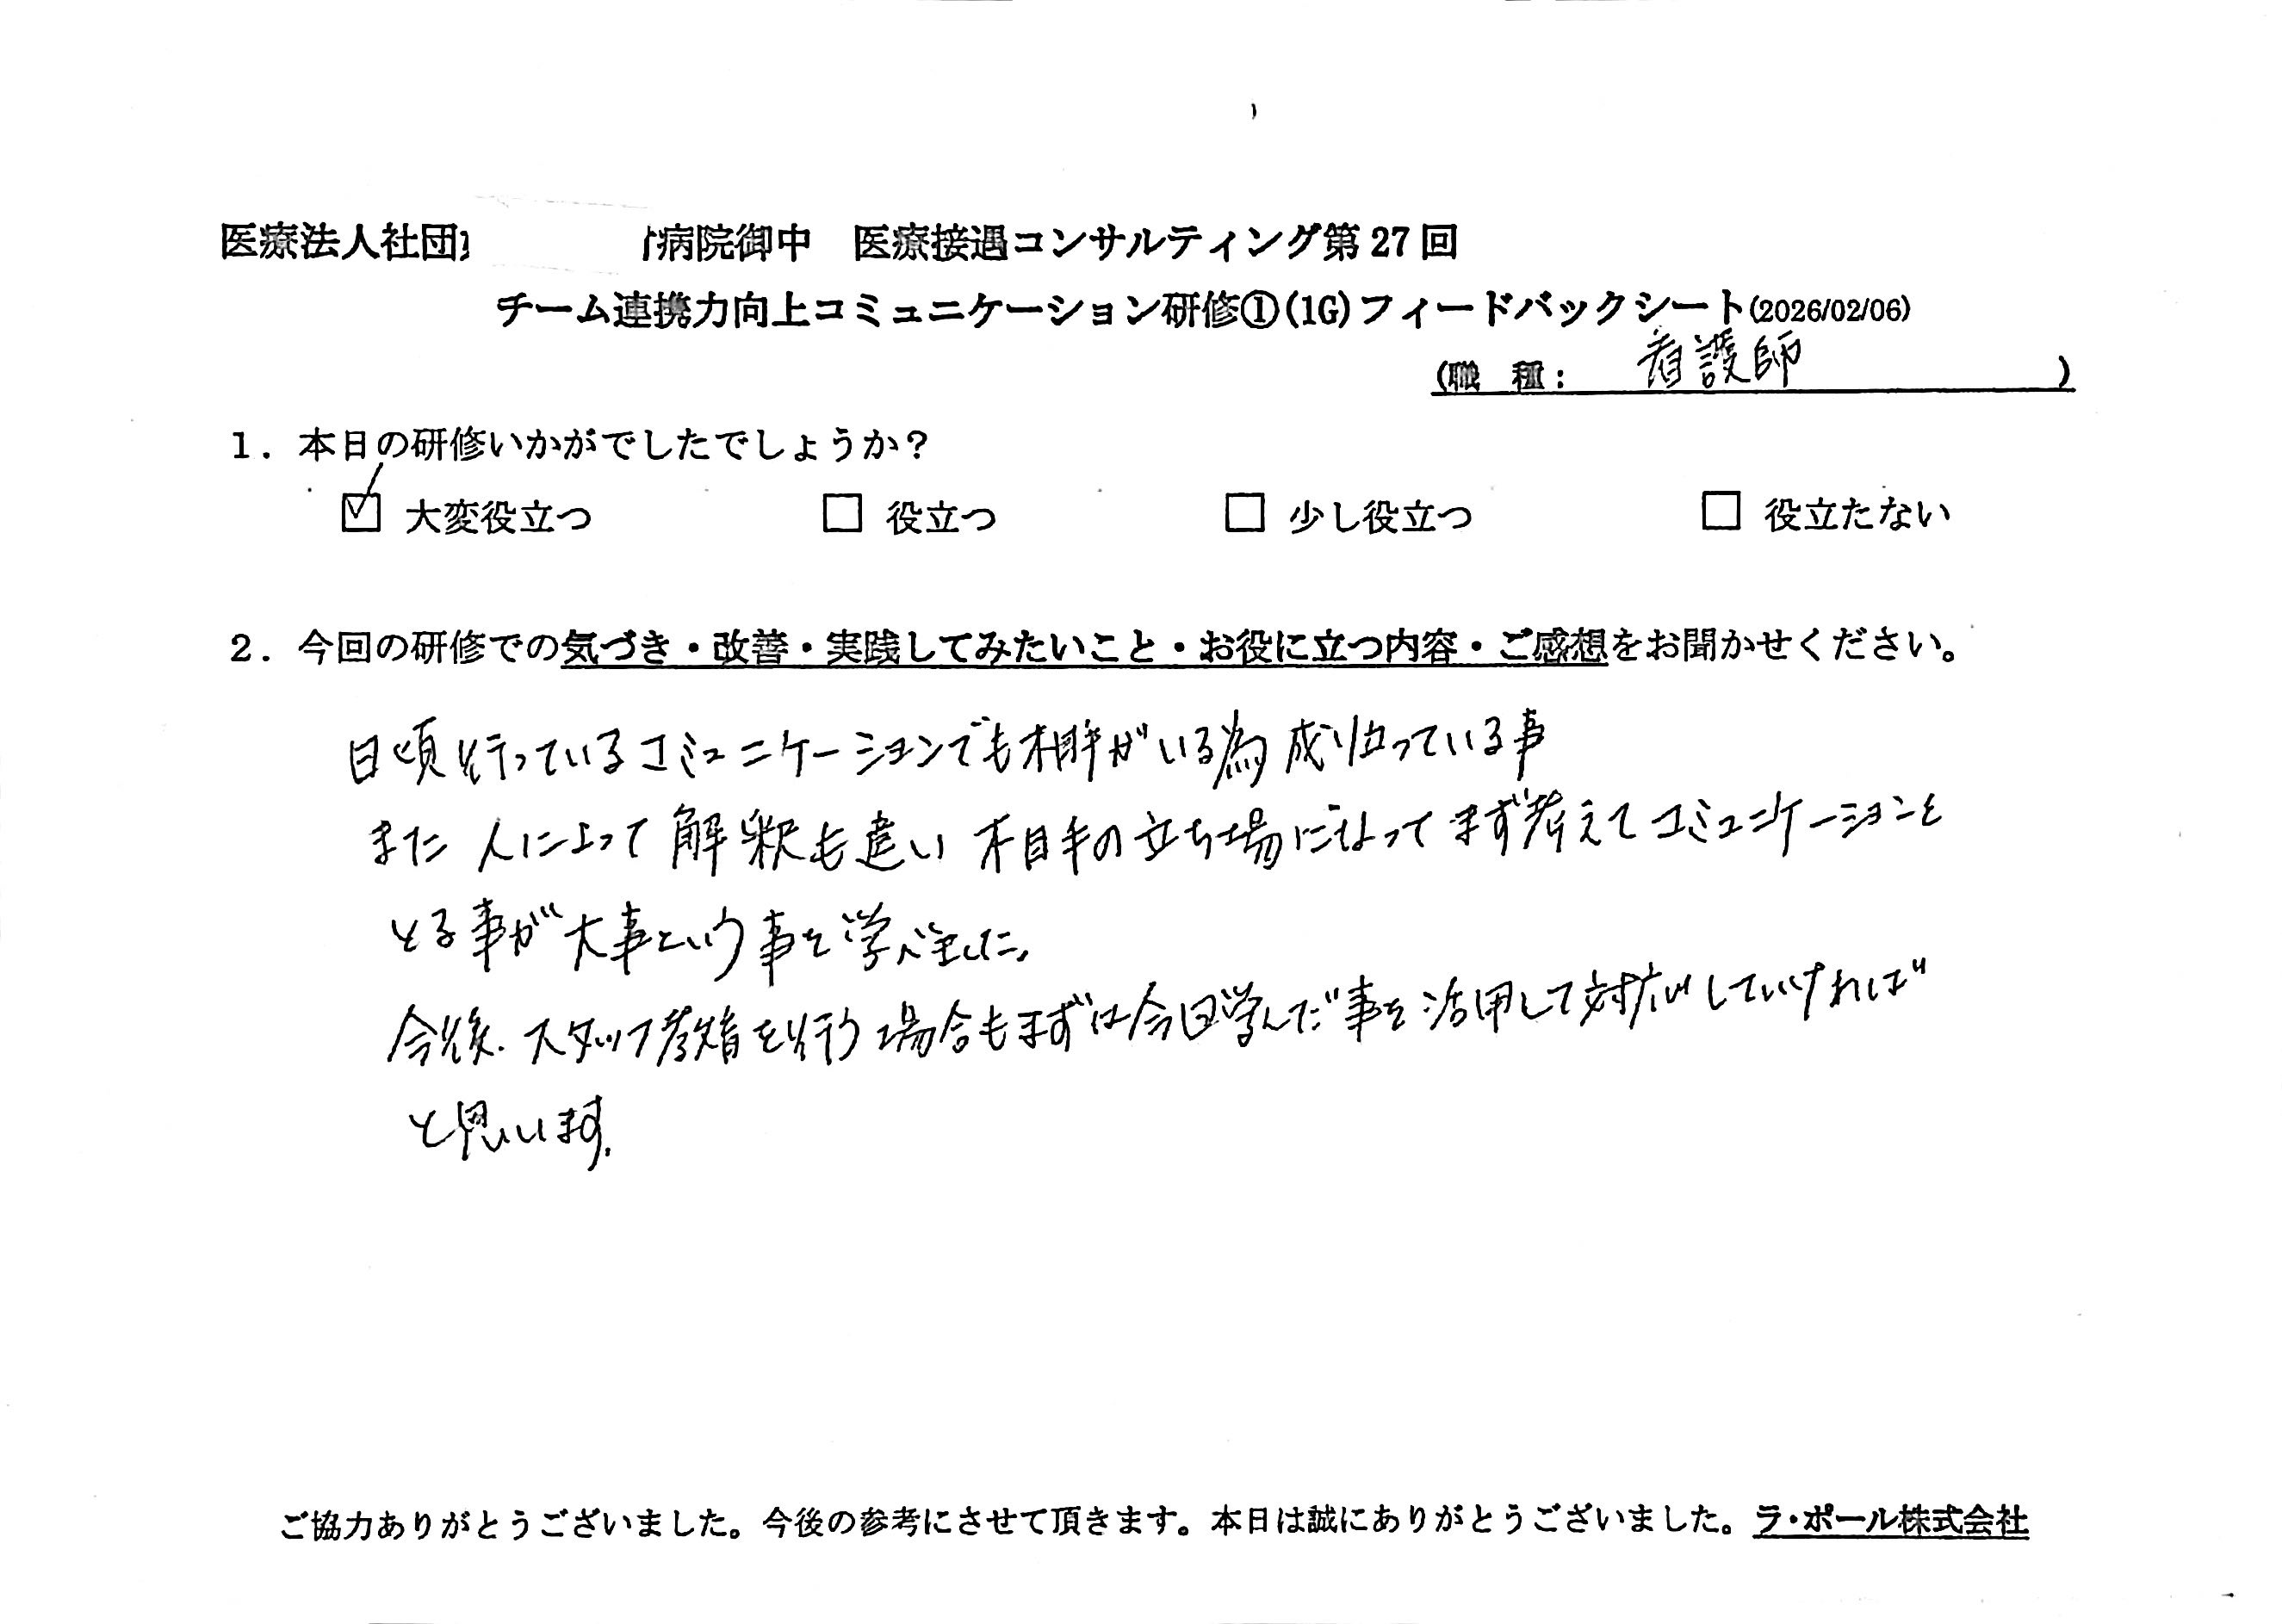 医療法人社団 病院御中 医療接遇コンサルティング第27回
チーム連携力向上コミュニケーション研修①(1G)フィードバックシート(2026/02/06)
(職 種: 看護師 )
1. 本日の研修いかがでしたでしょうか?
☑ 大変役立つ □ 役立つ □ 少し役立つ □ 役立たない
2. 今回の研修での気づき・改善・実践してみたいこと・お役に立つ内容・ご感想をお聞かせください。
日頃行っているコミュニケーションでも相手がいる為成り立っている事
また 人によって解釈も違い 相手の立ち場になってまず考えてコミュニケーションを
とる事が大事という事を学べました。
今後、スタッフ教育を行う場合もまずは今回学んだ事を活用して対応していければ
と思います。
ご協力ありがとうございました。今後の参考にさせて頂きます。本日は誠にありがとうございました。ラ・ポール株式会社